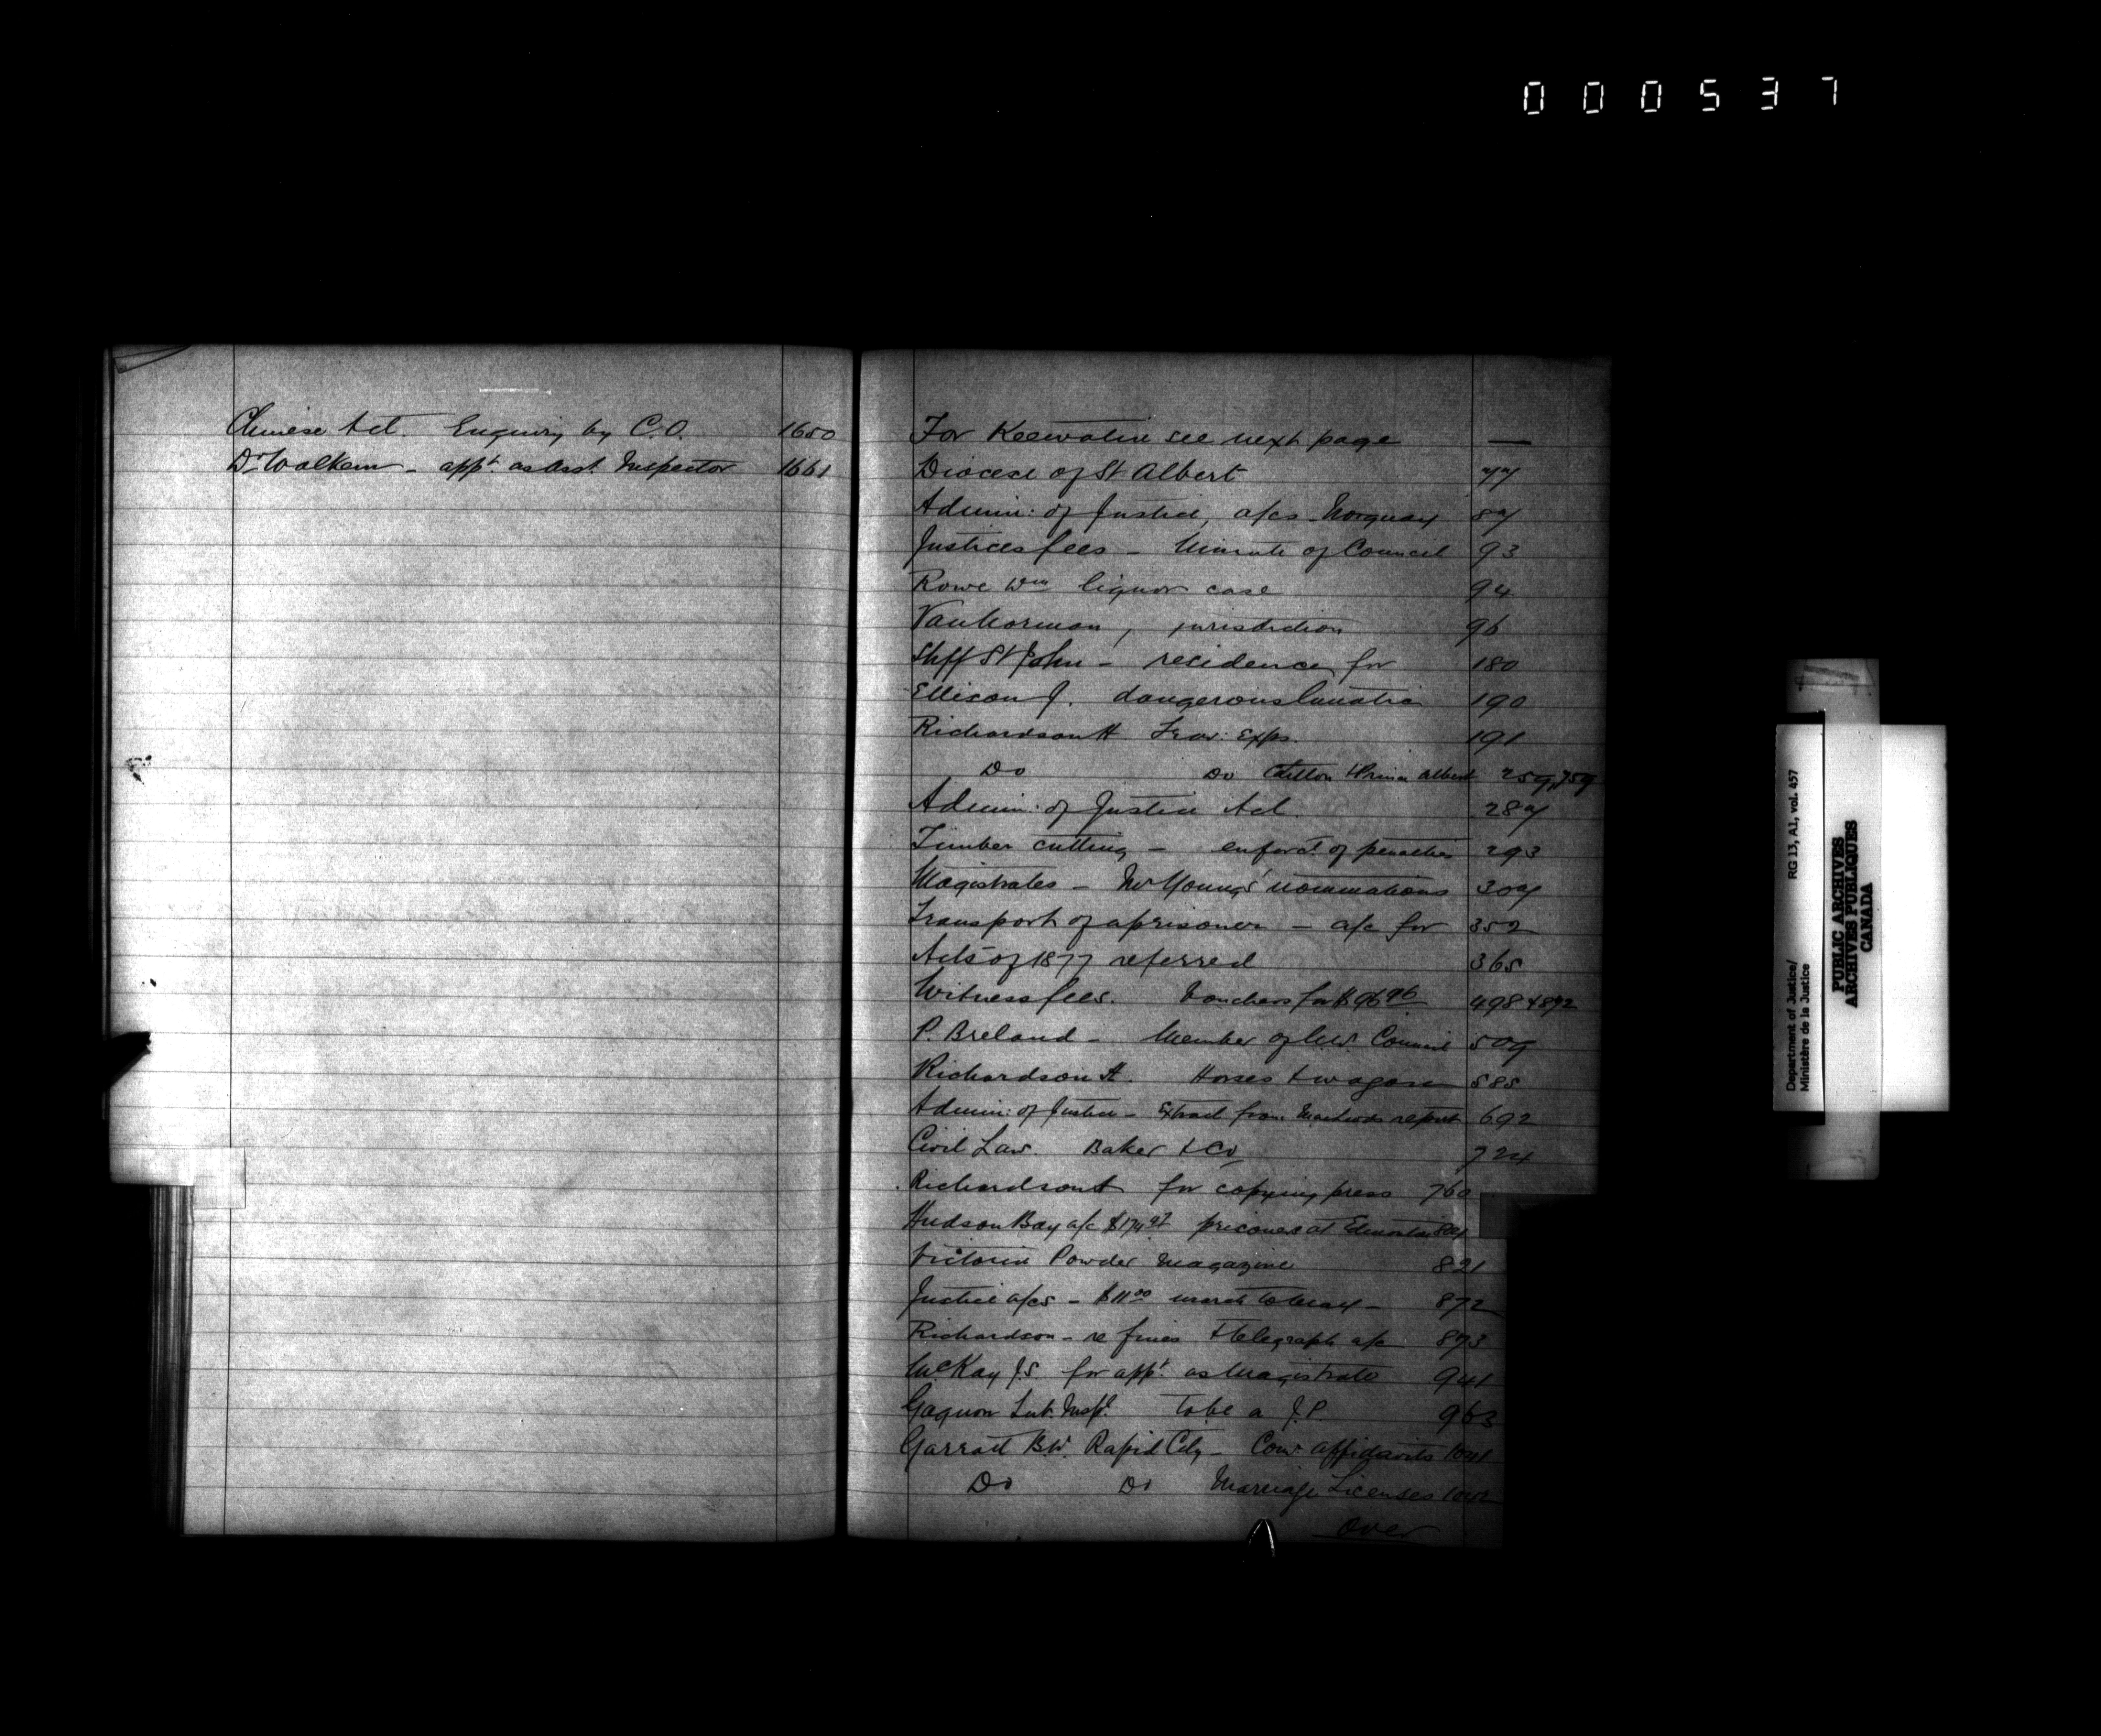 000537
Chinese Act. Enquiry by C.O. 1650
Dr Walkem - appt as Asst. Inspector 1661
For Keewatin see next page —
Diocese of St Albert 77
Admin: of Justice, a/cs - Norquay 87
Justices fees - Minute of Council 93
Rowe Wm liquor case 94
Vanhorman, jurisdiction 96
Shff St John - residence for 180
Ellison J. dangerous lunatic 190
Richardson H Trav: Exps. 191
Do Do Carlton & Prince Albert 259, 759
Admin: of Justice Act. 287
Timber cutting - enforct. of penalties 293
Magistrates - McYoung's nominations 307
Transport of a prisoner - a/c for 352
Acts of 1877 referred 365
Witness fees. Vouchers for $96 96 498 & 892
P. Breland - Member of N.W. Council 509
Richardson H. Horses & wagon 585
Admin: of Justice - Extract from Macleods report 692
Civil Law. Baker & Co 724
Richardson H for copying press 760
Hudson Bay a/c $174 prisoners at Edmonton 807
Victoria Powder Magazine 821
Justice a/cs - $11 00 872
Richardson - re fines & telegraph a/c 873
McKay J.S. for appt. as Magistrate 941
Gagnon Sub. Inspr. To be a J.P. 963
Garratt B.W. Rapid City - Com. affidavits 1041
Do Do Marriage Licenses 1042
Over
Department of Justice/
Ministère de la Justice
RG 13, A1, vol. 457
PUBLIC ARCHIVES
ARCHIVES PUBLIQUES
CANADA